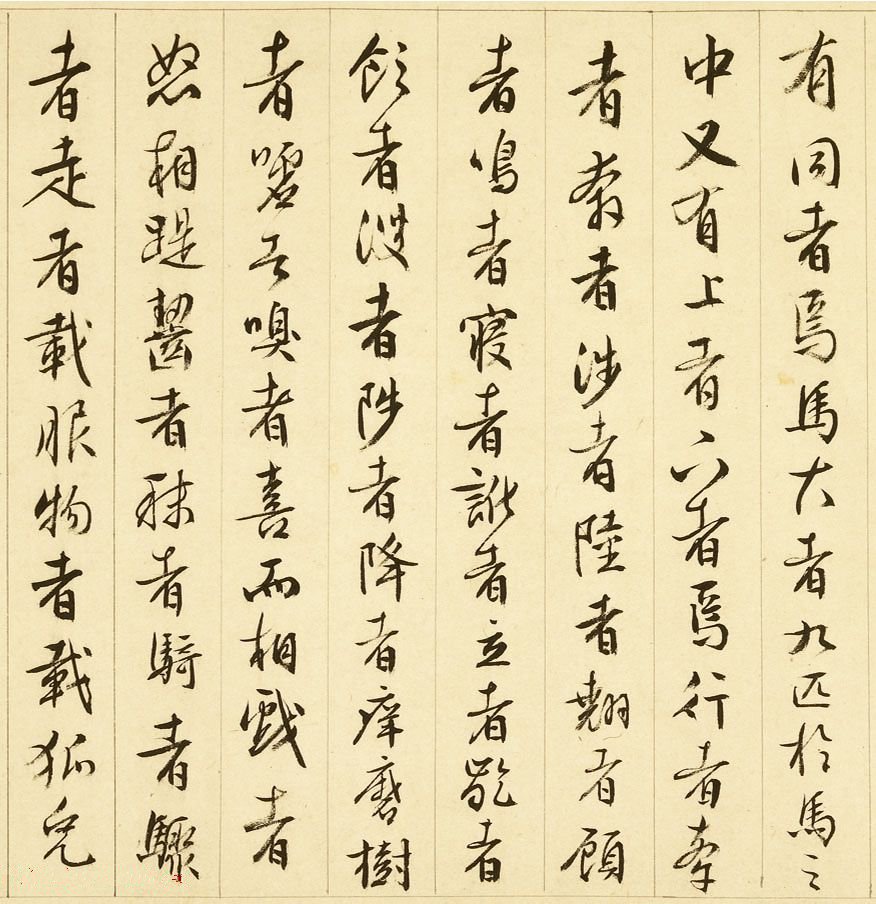 有同者焉馬大者九匹於馬之
中又有上者下者焉行者牽
者奔者涉者陸者翹者顧
者鳴者寢者訛者立者齕者
飲者溲者陟者降者痒磨樹
者噓者嗅者喜而相戲者
怒相踶齧者秣者騎者驟
者走者載服物者載狐兔